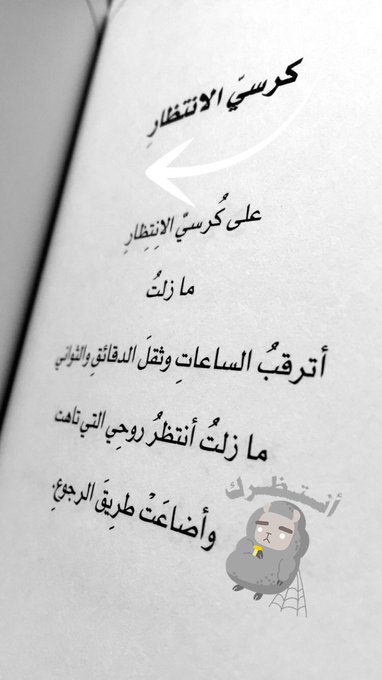 كرسيّ الانتظارِ
على كُرسيِّ الانِتِظارِ
ما زلتُ
أترقبُ الساعاتِ وثقلَ الدقائقِ والثواني
ما زلتُ أنتظرُ روحِي التي تاهت
وأضاعَتْ طرِيقَ الرجوعِ.
أنتظرك